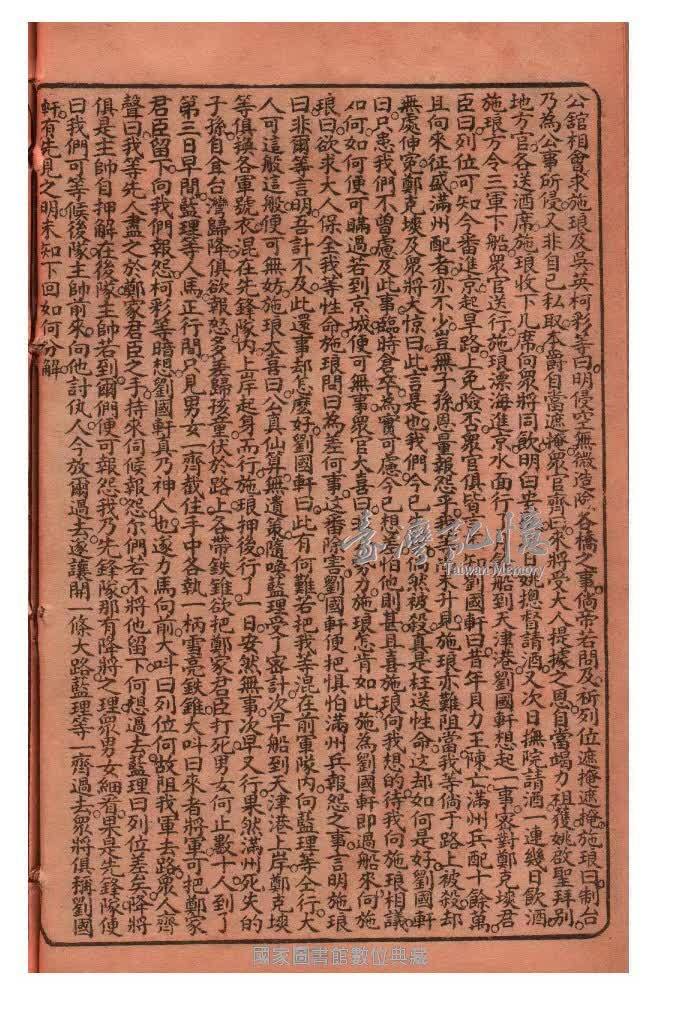 公舘相會求施琅及吳英柯彩等曰明侵空無微造除各橋之事倘帝若問及祈列位遮掩遮掩施琅曰制台
乃為公事所侵又非自己私取本爵自當遮掩眾官齊曰末將受大人提據之恩自當竭力姚啟聖拜別
地方官各送酒席施琅收下几席向眾將同飲明日安姚摠督請酒又次日撫院請酒一連幾日飲酒
施琅方今三軍下船眾官送行施琅漂海進京水面行船到天津港劉國軒想起一事密對鄭克塽君
臣曰列位可知今番進京起旱路凶免險否眾官俱皆劉國軒曰昔年貝力王陳亡滿州兵配十餘萬
且向來征盛滿州配者亦不少豈無子孫恩量報怨乎我等未升見施琅亦難阻當我等倘于路上被殺却
無處伸寃鄭克塽及眾將大惊曰此言是也我們今已然被殺真是枉送性命這却如何是好劉國軒
曰只患我們不曾慮及此事臨時倉卒為實可慮今已想怕他則甚且喜施琅向我想的待我向施琅相議
如何如何便可瞞過若到京城便可無事眾官大喜曰力施琅怎肯如此施為劉國軒即過船來向施
琅曰欲求大人保全我等性命施琅問曰為差何事這番除害劉國軒便把惧怕滿州兵報怨之事言明施琅
曰非爾等言明吾計不及此還事却怎麼好劉國軒曰此有何難若把我等混在前軍隊內向藍理等仝行大
人可這般這般便可無妨施琅大喜曰公真仙算無遺策隨喚藍理受了密計次早船到天津港上岸鄭克塽
等俱穪各軍號衣混在先鋒隊內上岸起身而行施琅押後行了一日安然無事次早又行果然滿州死失的
子孫自食台灣歸降俱欲報怨多差歸孩童伏於路上各帶鉄錐欲把鄭家君臣打死男女何止數十人到了
第三日早間藍理等人馬正行間只見男女一齊截住手中各執一柄雪亮鉄錐大叫曰來者將軍可把鄭家
君臣留下向我們報怨柯彩等暗想劉國軒真乃神人也遂力馬向前大叫曰列位何故阻我軍去路眾人齊
聲曰我等先人盡之於鄭家君臣之手持來伺候報怨尔們若不將他留下何想過去藍理曰列位差矣降將
俱是主帥自押解在後隊主帥若到爾們便可報怨我乃先鋒隊那有降將之理眾男女細看果是先鋒隊便
曰我們可等候後隊主帥前來向他討仇人今放爾過去遂讓開一條大路藍理等一齊過去眾將俱穪劉國
軒有先見之明未知下回如何分解
臺灣記憶
Taiwan Memory
國家圖書館數位典藏